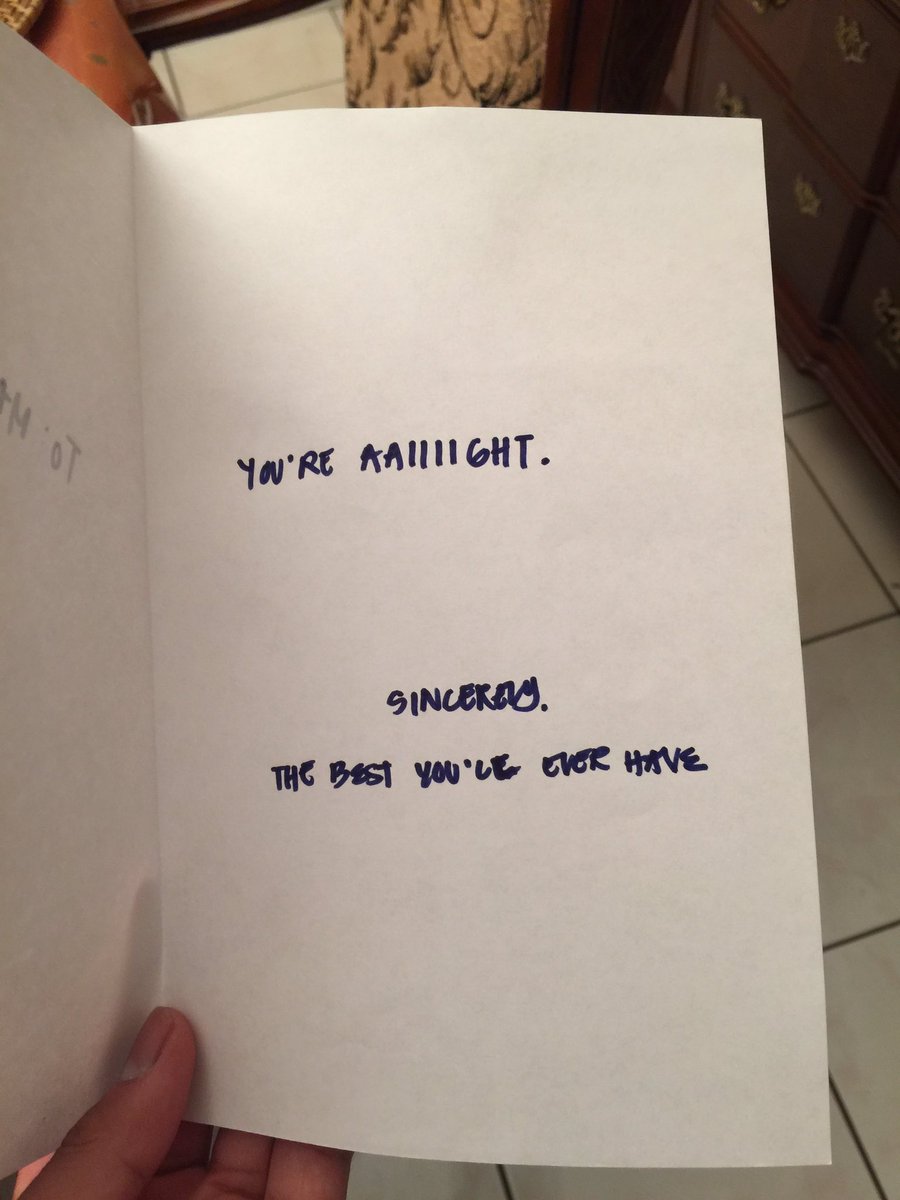 YOU'RE AAIIIIGHT.
SINCERELY.
THE BEST YOU'LE EVER HAVE
TO: